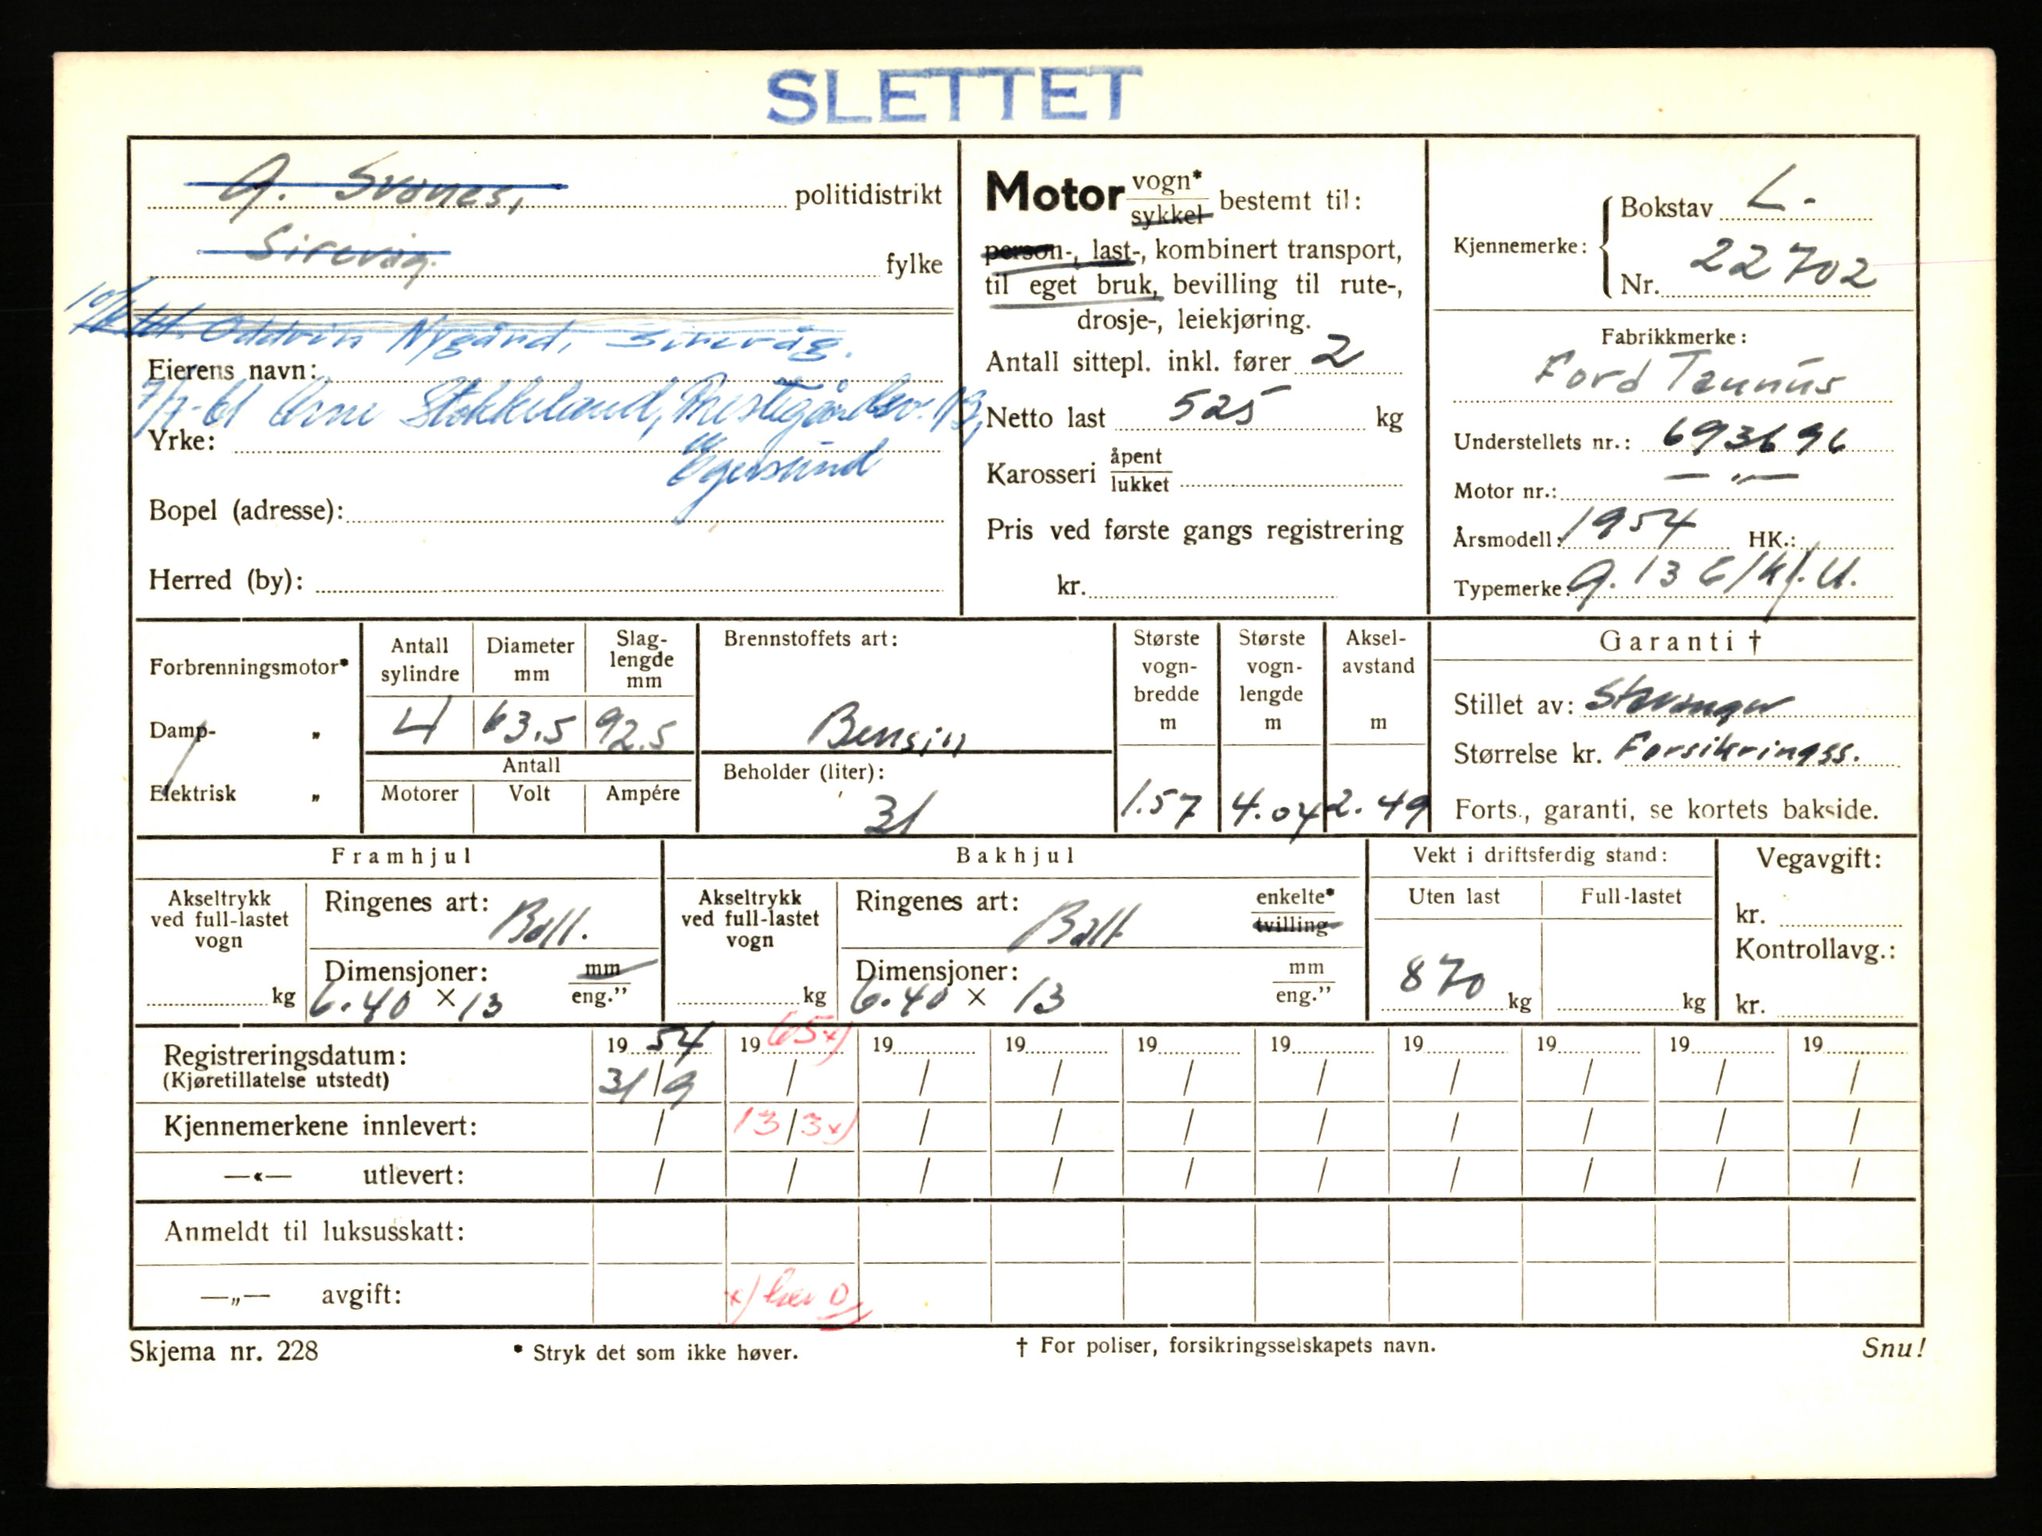 SLETTET
A. Svanes, politidistrikt
Sirevåg. fylke
Oddvin Nygård, Sirevåg.
Eierens navn:
7/7-61 Arne Stokkeland, Prestegårdsv. 13,
Yrke:
Egersund
Bopel (adresse):
Herred (by):
Motor vogn* sykkel bestemt til:
person-, last-, kombinert transport,
til eget bruk, bevilling til rute-,
drosje-, leiekjøring.
Antall sittepl. inkl. fører 2
Netto last 525 kg
Karosseri åpent lukket
Pris ved første gangs registrering
kr.
Kjennemerke: Bokstav L.-
Nr. 22702
Fabrikkmerke:
Ford Taunus
Understellets nr.: 693696
Motor nr.: — „ —
Årsmodell: 1954 HK.:
Typemerke: G. 13 C/kf. U.
Forbrenningsmotor*
Damp- „
Elektrisk „
Antall sylindre Diameter mm Slag-lengde mm
4 63,5 92,5
Antall
Motorer Volt Ampére
Brennstoffets art:
Bensin
Beholder (liter):
31
Største vogn-bredde m Største vogn-lengde m Aksel-avstand m
1.57 4.04 2.49
Garanti †
Stillet av: Stavanger
Størrelse kr. Forsikringss.
Forts., garanti, se kortets bakside.
Framhjul
Akseltrykk ved full-lastet vogn
kg
Ringenes art: Ball.
Dimensjoner: mm eng."
6.40 × 13
Bakhjul
Akseltrykk ved full-lastet vogn
kg
Ringenes art: Ball enkelte* tvilling
Dimensjoner: mm eng."
6.40 × 13
Vekt i driftsferdig stand:
Uten last Full-lastet
870 kg kg
Vegavgift:
kr.
Kontrollavg.:
kr.
Registreringsdatum: 19 54 19 65x) 19 19 19 19 19 19 19 19
(Kjøretillatelse utstedt) 31/9 / / / / / / / / /
Kjennemerkene innlevert: / 13/3x) / / / / / / / /
—«— utlevert: / / / / / / / / / /
Anmeldt til luksusskatt:
—„— avgift:
Skjema nr. 228 * Stryk det som ikke høver. † For poliser, forsikringsselskapets navn. Snu!